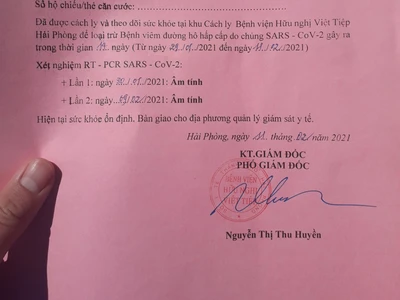 Số hộ chiếu/thẻ căn cước:
Đã được cách ly và theo dõi sức khỏe tại khu Cách ly Bệnh viện Hữu nghị Việt Tiệp
Hải Phòng để loại trừ Bệnh viêm đường hô hấp cấp do chủng SARS - CoV-2 gây ra
trong thời gian ngày (Từ ngày /2021 đến ngày 11/02/2021)
Xét nghiệm RT - PCR SARS - CoV-2:
+ Lần 1: ngày /2021: Âm tính
+ Lần 2: ngày 09/02/2021: Âm tính
Hiện tại sức khỏe ổn định. Bàn giao cho địa phương quản lý giám sát y tế.
Hải Phòng, ngày 11 tháng 02 năm 2021
KT.GIÁM ĐỐC
PHÓ GIÁM ĐỐC
BỆNH VIỆN
HỮU NGHỊ
VIỆT TIỆP
Nguyễn Thị Thu Huyền